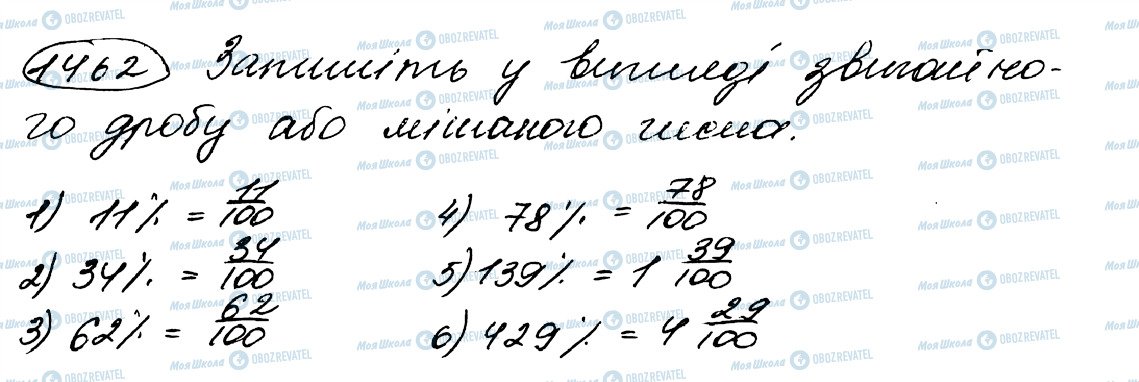 1462 Запишіть у вигляді звичайно-
го дробу або мішаного числа.
1) 11% = 11/100
2) 34% = 34/100
3) 62% = 62/100
4) 78% = 78/100
5) 139% = 1 39/100
6) 429% = 4 29/100
Моя Школа OBOZREVATEL